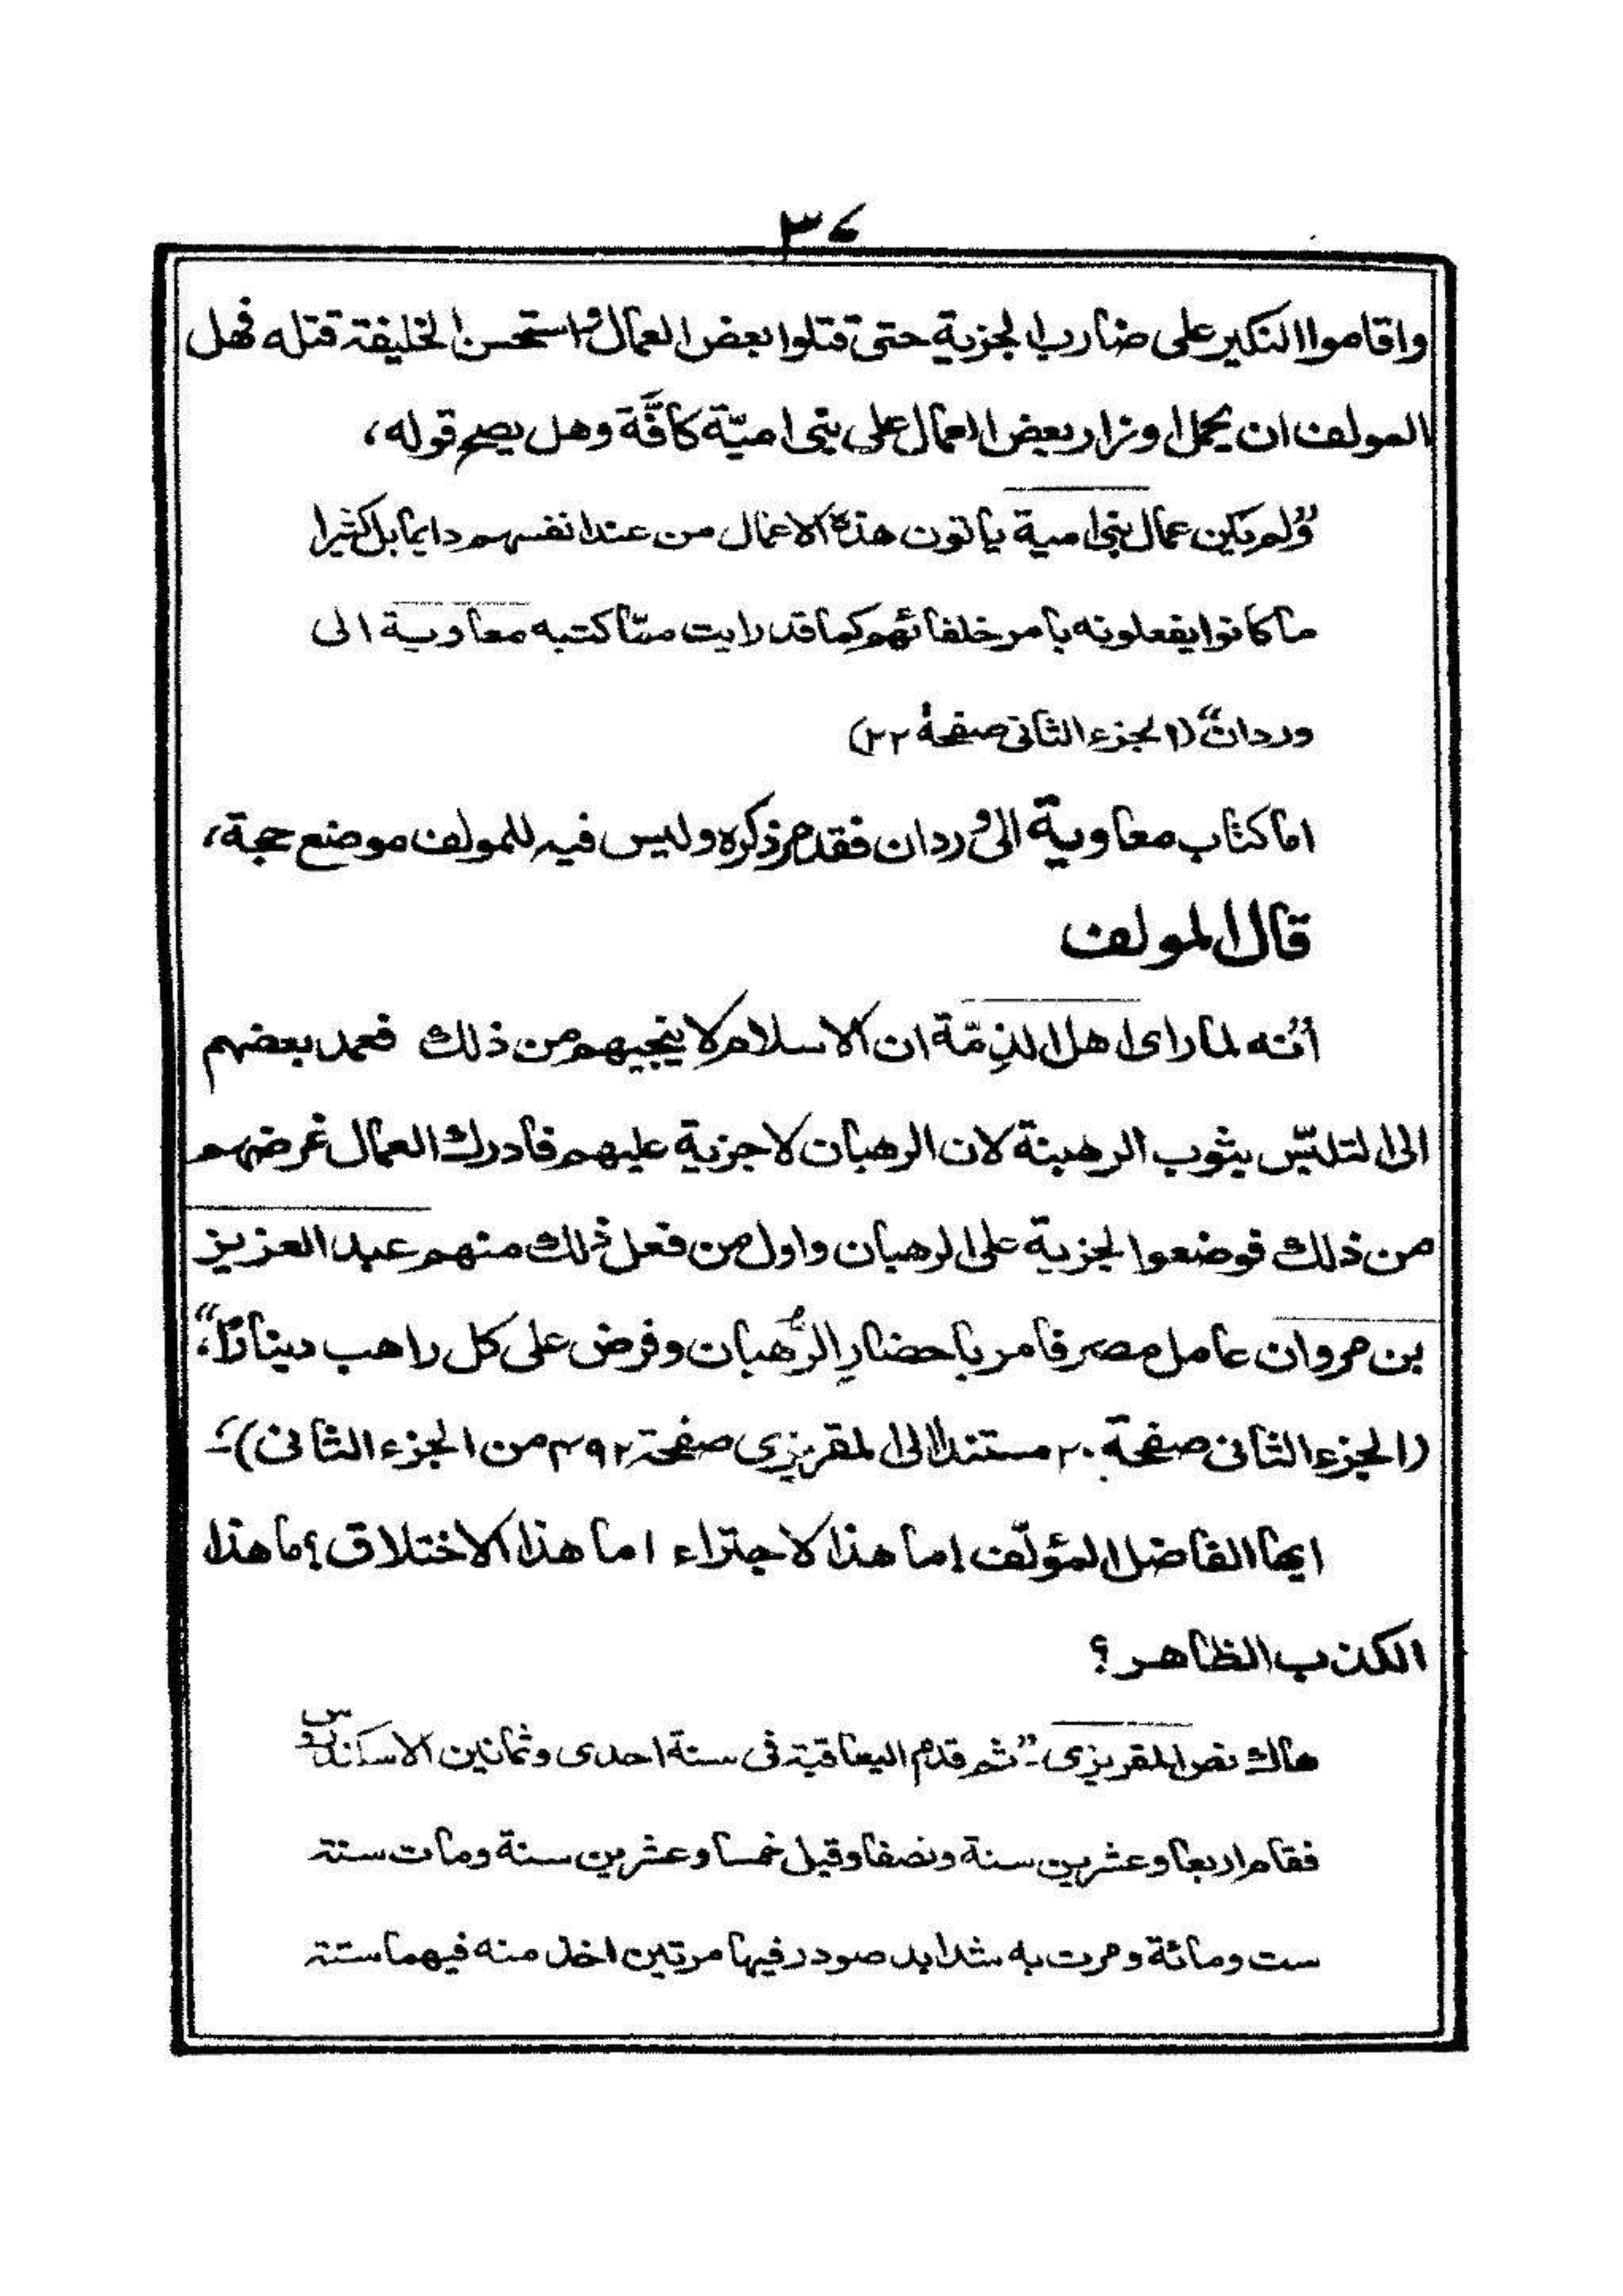 ٣٤
واقاموا النكير على ضارب الجزية حتى قتلوا بعض العمال واستحسن الخليفة قتله فهل
المولف ان يحمل اوزار بعض العمال على بنى اميّة كافَّة وهل يصح قوله،
"ولم يكن عمال بنى امية ياتون هذه الاعمال من عند انفسهم دايما بل كثيرا
ما كانوا يفعلونه بامر خلفائهم كما قد رايت ممّا كتبه معاوية الى
وردان" (الجزء الثانى صفحة ٢٢)
اما كتاب معاوية الى وردان فقد مر ذكره وليس فيه للمولف موضع حجة،
قال المولف
"انه لما راى اهل الذِمّة ان الاسلام لا ينجيهم من ذلك فعمد بعضهم
الى التلبّس بثوب الرهبنة لان الرهبان لا جزية عليهم فادرك العمال غرضهم
من ذلك فوضعوا الجزية على الرهبان واول من فعل ذلك منهم عبد العزيز
بن مروان عامل مصر فامر باحضارِ الرُّهبان وفرض على كل راهب دينارًا"،
(الجزء الثانى صفحة ٢٠ مستندا الى المقريزى صفحة ٤٩٢ من الجزء الثانى)-
ايها الفاضل المؤلّف! ما هذا الاجتراء! ما هذا الاختلاق؟ ما هذا
الكذب الظاهر؟
هاك نص المقريزى-"ثم قدم اليعاقبة فى سنة احدى وثمانين الاسكندروس
فقام اربعا وعشرين سنة ونصفا وقيل خمسا وعشرين سنة ومات سنة
ست ومائة ومرت به شدايد صودر فيها مرتين اخذ منه فيهما ستة